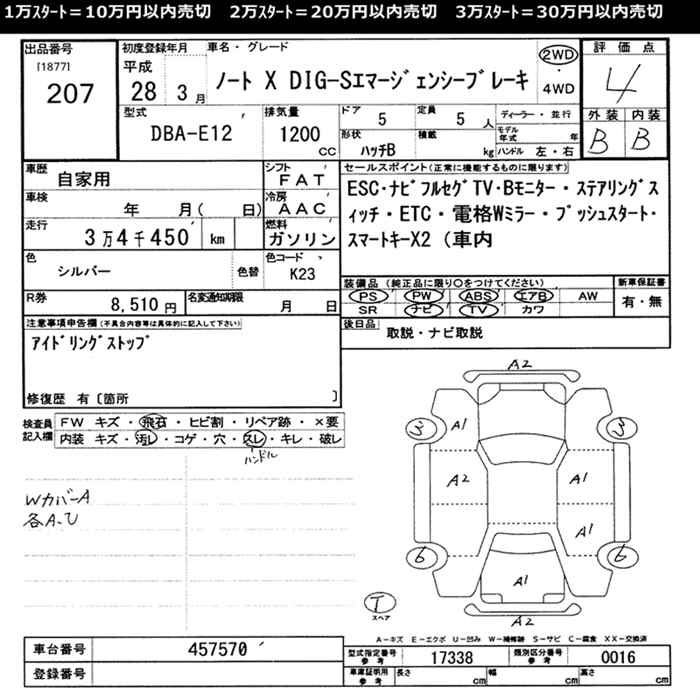 1万ｽﾀｰﾄ＝10万円以内売切　2万ｽﾀｰﾄ＝20万円以内売切　3万ｽﾀｰﾄ＝30万円以内売切
出品番号
[1877]
207
初度登録年月
平成
28 3月
車名・グレード
ノート X DIG-Sエマージェンシーブレーキ
2WD
・
4WD
評価点
4
外装 内装
B B
型式
DBA-E12
排気量
1200 cc
ドア
5
定員
5 人
形状
ハッチB
積載
kg
ディーラー・並行
モデル年式 年
ハンドル 左・右
車歴
自家用
シフト
FAT
車検
年 月( 日)
冷房
AAC
走行
3万4千450 km
燃料
ガソリン
色
シルバー
色替
色コード
K23
R券
8,510円
名変通知期限
月 日
セールスポイント(正常に機能するものに限ります)
ESC・ナビフルセグTV・Bモニター・ステアリングス
ィッチ・ETC・電格Wミラー・プッシュスタート・
スマートキーX2 (車内
装備品 (純正品に限り○をつけてください)
PS PW ABS エアB AW
SR ナビ TV カワ
新車保証書
有・無
後日品
取説・ナビ取説
注意事項申告欄(不具合内容等は具体的に記入して下さい)
アイドリングストップ
修復歴 有〔箇所 〕
検査員
記入欄
FW キズ・飛石・ヒビ割・リペア跡・×要
内装 キズ・汚レ・コゲ・穴・スレ・キレ・破レ
ハンドル
WカバーA
各A・U
A2
3 A1 3
A2 A1
A1
6 A1 6
T
スペア
A2
A－キズ E－エクボ U－凹み W－補修跡 S－サビ C－腐食 XX－交換済
車台番号
457570
登録番号
型式指定番号
参考
17338
類別区分番号
参考
0016
車庫証明用
参考
長さ cm 幅 cm 高さ cm